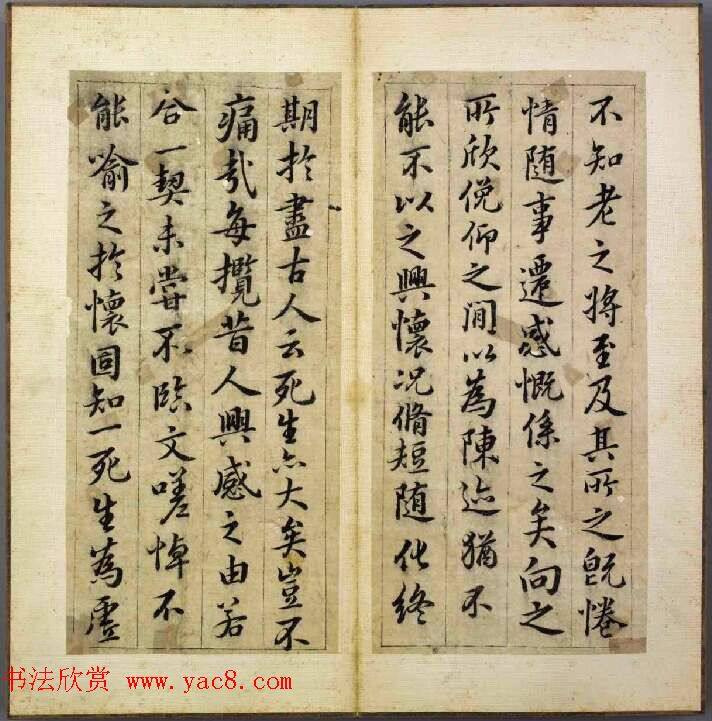 不知老之將至及其所之旣惓
情隨事遷感慨係之矣向之
所欣俛仰之閒以為陳迹猶不
能不以之興懷况脩短隨化終
期於盡古人云死生亦大矣豈不
痛哉每攬昔人興感之由若
合一契未甞不臨文嗟悼不
能喻之於懷固知一死生為虛
书法欣赏 www.yac8.com